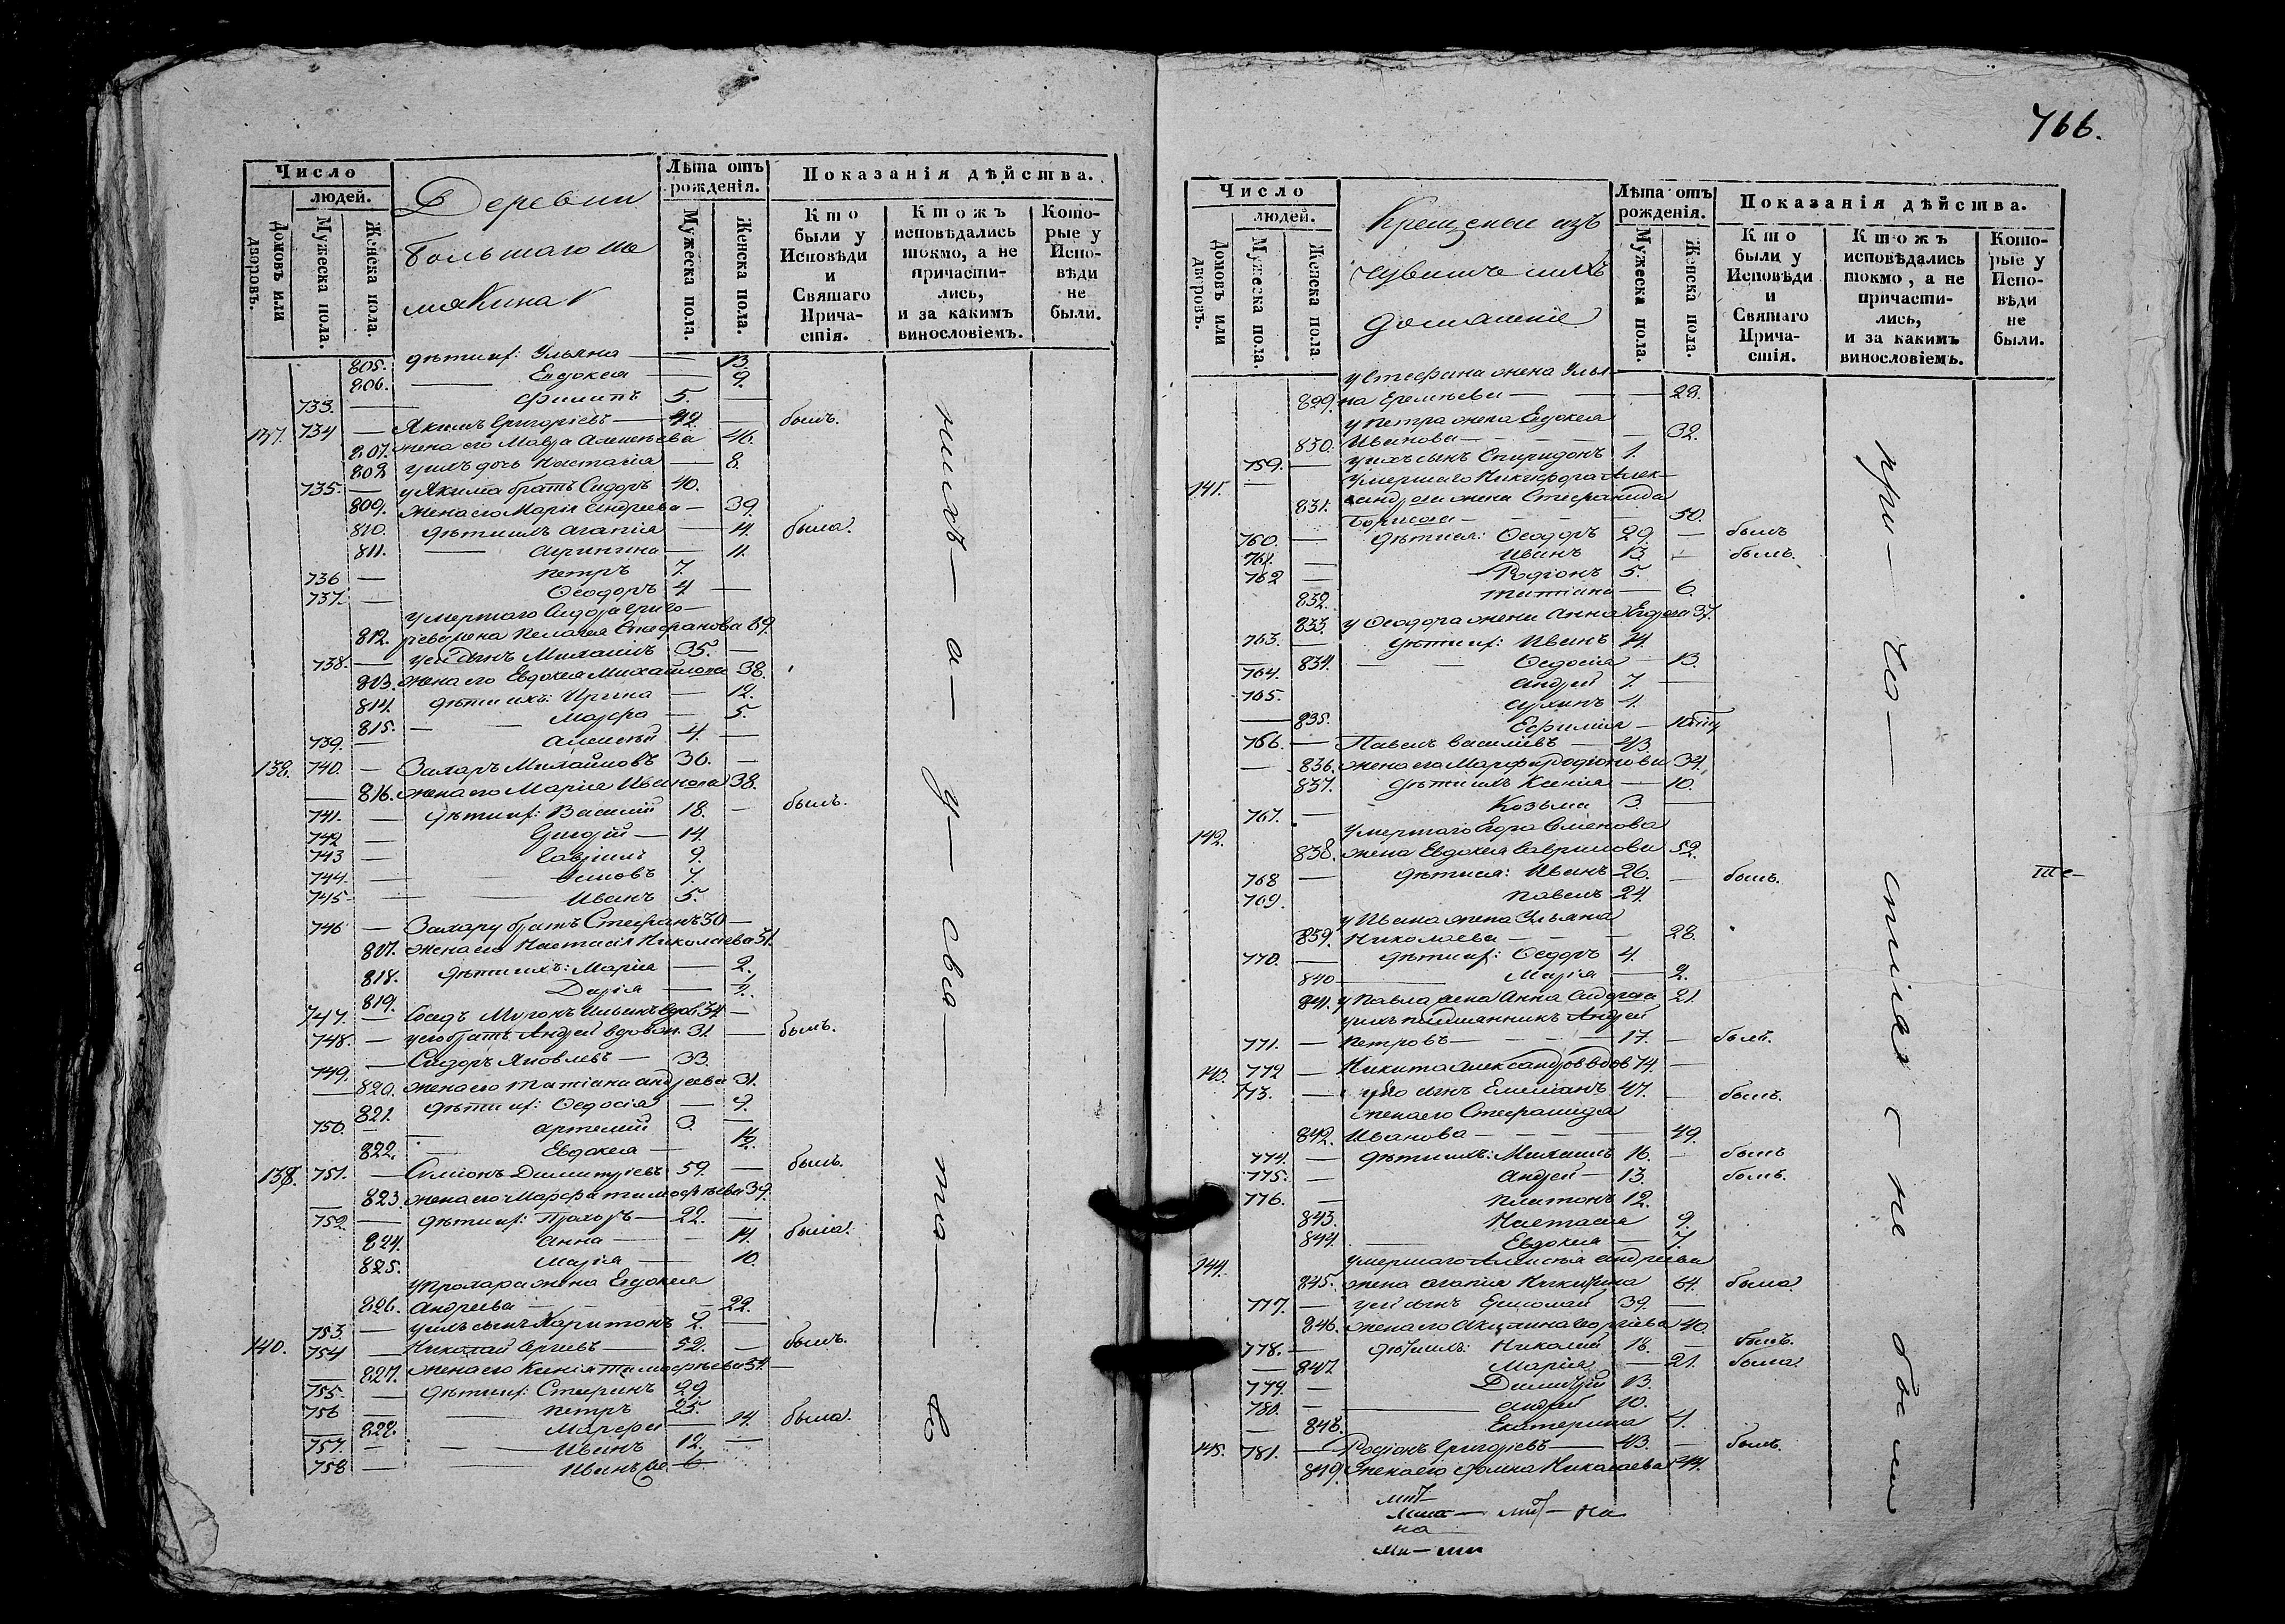 Число
людей.
Домовъ или дворовъ.
Мужеска пола.
Женска пола.
Деревни
большаго ше
мякина
Лѣта отъ
рожденія.
Мужеска пола.
Женска пола.
Показанія дѣйства.
Кто
были у
Исповѣди
и
Святаго
Прича-
стія.
Ктожъ
исповѣдались
токмо, а не
причасти-
лись,
и за какимъ
винословіемъ.
Кото-
рые у
Испо-
вѣди
не
были.
805. дѣти их: Ульяна 13.
806. Евдокея 9.
733. Филипъ 5.
137. 734 Якимъ Григорьевъ 42. былъ.
807. жена его Мавра Алексѣева 46.
808 у нихъ дочь Настасія 8.
735. у Якима братъ Сидоръ 40.
809. жена его Марія Андреева 39.
810. дѣти ихъ Агапія 14. была.
811. 11.
736 Петръ 7.
737. Ѳеодоръ 4
умершаго Сидора Григо-
812. рьева жена Пелагея Стефанова 89.
738. у ней сынъ Михаилъ 35.
813. жена его Евдокея Михайлова 38.
814. дѣти ихъ: Ирина 12.
815. Марфа 5.
739. Алексѣй 4.
138. 740. Захаръ Михайловъ 36.
816. жена его Марія Иванова 38.
741. дѣти их: Василій 18. былъ.
742 Григорій 14.
743 Гавріилъ 9.
744. 7.
745 Иванъ 5.
746 Захару братъ Стефанъ 30
817. жена его Настасія Николаева 31.
818. дѣти ихъ: Марія 2.
819. Дарія
747. 34
748. у его братъ Андрей вдовъ 31. былъ.
749. Сидоръ Яковлевъ 33.
820. жена его Татіана Андреева 31.
821. дѣти их: Ѳедосія 9.
750. Артемій 3.
822. Евдокея
139. 751. Симіонъ Димитріевъ 59. былъ.
823. жена его Марфа Тимофѣева 39.
752. дѣти их: Прохоръ 22.
824. Анна 14. была.
825. Марія 10.
у Прохора жена Евдокея
826. Андреева 22.
753. у нихъ сынъ Харитонъ 2.
140. 754 Николай Сергѣевъ 52. былъ.
827. жена его Ксенія Тимофѣева 51.
755. дѣти их: Стефанъ 29.
756 Петръ 25.
828. Марфа 14. была.
757. Иванъ 12.
758 Иванъ 6.
766.
Число
людей.
Домовъ или дворовъ.
Мужеска пола.
Женска пола.
Крещеныи изъ
чувашъ ихъ
домашніе
Лѣта отъ
рожденія.
Мужеска пола.
Женска пола.
Показанія дѣйства.
Кто
были у
Исповѣди
и
Святаго
Прича-
стія.
Ктожъ
исповѣдались
токмо, а не
причасти-
лись,
и за какимъ
винословіемъ.
Кото-
рые у
Испо-
вѣди
не
были.
у Стефана жена Улья-
829. на Еремѣева 28.
у Петра жена Евдокея
830. Иванова 32.
759. у ихъ сынъ Спиридонъ 1.
141. умершаго Никифора Алек-
831. сандрова жена Стефанида
Борисова 50.
760. дѣти ея: Ѳеодоръ 29. былъ
761. Иванъ 13 былъ.
762 Родіонъ 5.
832. Татіана 6.
833. у Ѳеодора жена Анна Егорова 37.
763. дѣти их: Иванъ 14.
834. Ѳедосія 13.
764. Андрей 7.
765.
835. Ефимія
766. Павелъ Василіевъ 43.
836. жена его Марфа Родіонова 34.
837. дѣти ихъ Ксенія 10.
767. Козьма 3.
142. умершаго Егора Семенова
838. жена Евдокея Гаврилова 52.
768 дѣти ея: Иванъ 26. былъ.
769. Павелъ 24.
у Ивана жена Ульяна
839. Николаева 28.
770. дѣти их: Ѳедоръ 4.
840 Марія 2.
841. у Павла жена Анна Сидорова 21.
у ихъ племянникъ Андрей
771. Петровъ 17. былъ.
143. 772 Никита Александровъ вдовъ 74.
773. у его сынъ Емиліанъ 47. былъ.
жена его Стефанида
842. Иванова 49.
774. дѣти ихъ: Михаилъ 16. былъ
775. Андрей 13. былъ.
776. Платонъ 12.
843. Настасія 9.
844. Евдокея 7.
144. умершаго Алексѣя Андреева
845. жена Агапія Никитина 64. была.
777. у ней сынъ Ермолай 39.
846. жена его Акулина Георгіева 40.
778. дѣти ихъ: Николай 18. былъ.
847. Марія 21. была.
779. Димитрій 13.
780. Андрей 10.
848. Екатерина 4.
145. 781. Родіонъ Григорьевъ 43. былъ.
849. жена его Фокла Николаева 44.